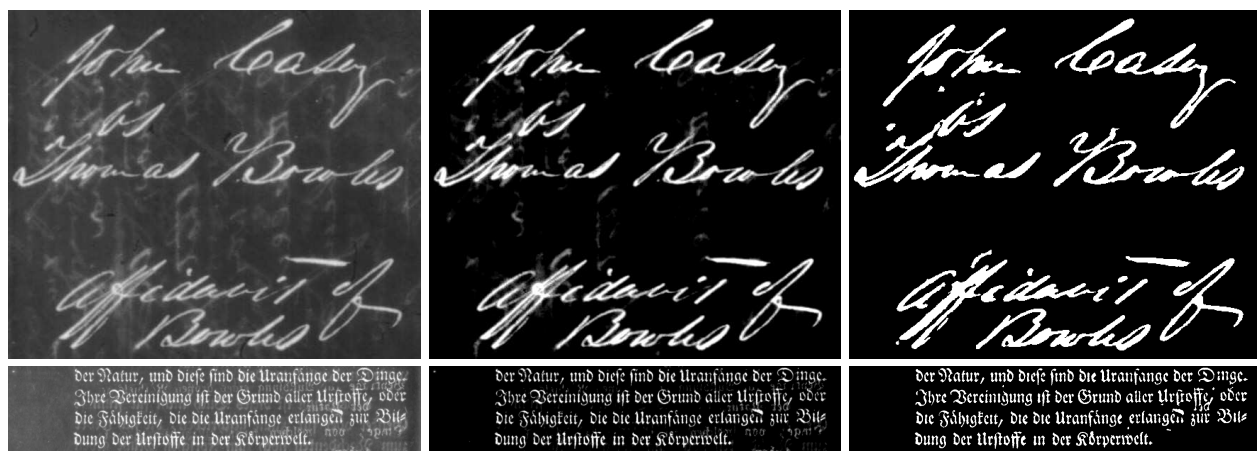 John Casey
vs
Thomas Bowles
Affidavit of
Bowles
John Casey
vs
Thomas Bowles
Affidavit of
Bowles
John Casey
vs
Thomas Bowles
Affidavit of
Bowles
der Natur, und dieſe ſind die Uranfänge der Dinge.
Ihre Vereinigung iſt der Grund aller Urſtoffe, oder
die Fähigkeit, die die Uranfänge erlangen zur Bil-
dung der Urſtoffe in der Körperwelt.
der Natur, und dieſe ſind die Uranfänge der Dinge.
Ihre Vereinigung iſt der Grund aller Urſtoffe, oder
die Fähigkeit, die die Uranfänge erlangen zur Bil-
dung der Urſtoffe in der Körperwelt.
der Natur, und dieſe ſind die Uranfänge der Dinge.
Ihre Vereinigung iſt der Grund aller Urſtoffe, oder
die Fähigkeit, die die Uranfänge erlangen zur Bil-
dung der Urſtoffe in der Körperwelt.